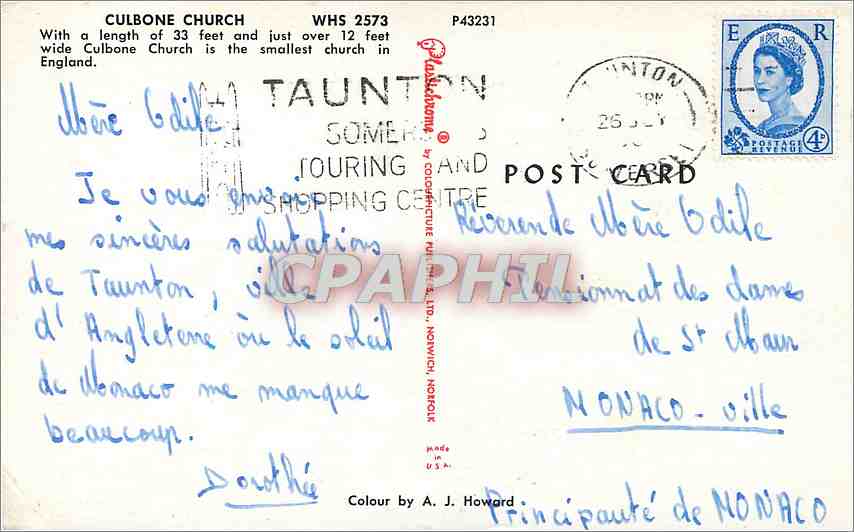 CULBONE CHURCH WHS 2573 P43231
With a length of 33 feet and just over 12 feet
wide Culbone Church is the smallest church in
England.
Mère Odile
Je vous envoie
mes sincères salutations
de Taunton, ville
d'Angleterre où le soleil
de Monaco me manque
beaucoup.
Dorothée
TAUNTON
SOMERS
TOURING AND
SHOPPING CENTRE
Plastichrome ®
by COLOURPICTURE PUBLISHERS, LTD., NORWICH, NORFOLK
Made in
U.S.A.
Colour by A. J. Howard
E R
POSTAGE
REVENUE
4D
TAUNTON
PM
26 JLY
SOMERSET
POST CARD
Révérende Mère Odile
Pensionnat des dames
de St Maur
MONACO-Ville
Principauté de MONACO
CPAPHIL